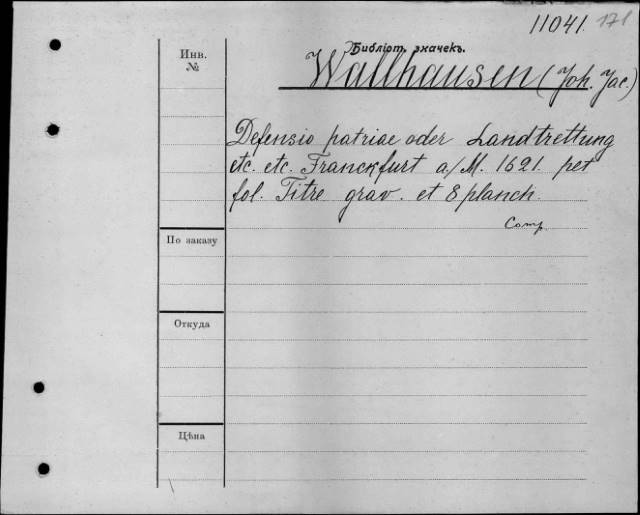 11041. 171
Библіот. значекъ.
Инв.
№
Wallhausen (Joh. Jac.)
Defensio patriae oder Landtrettung
etc. etc. Franckfurt a/M. 1621. pet
fol. Titre grav. et 8 planch.
Comp.
По заказу
Откуда
Цѣна